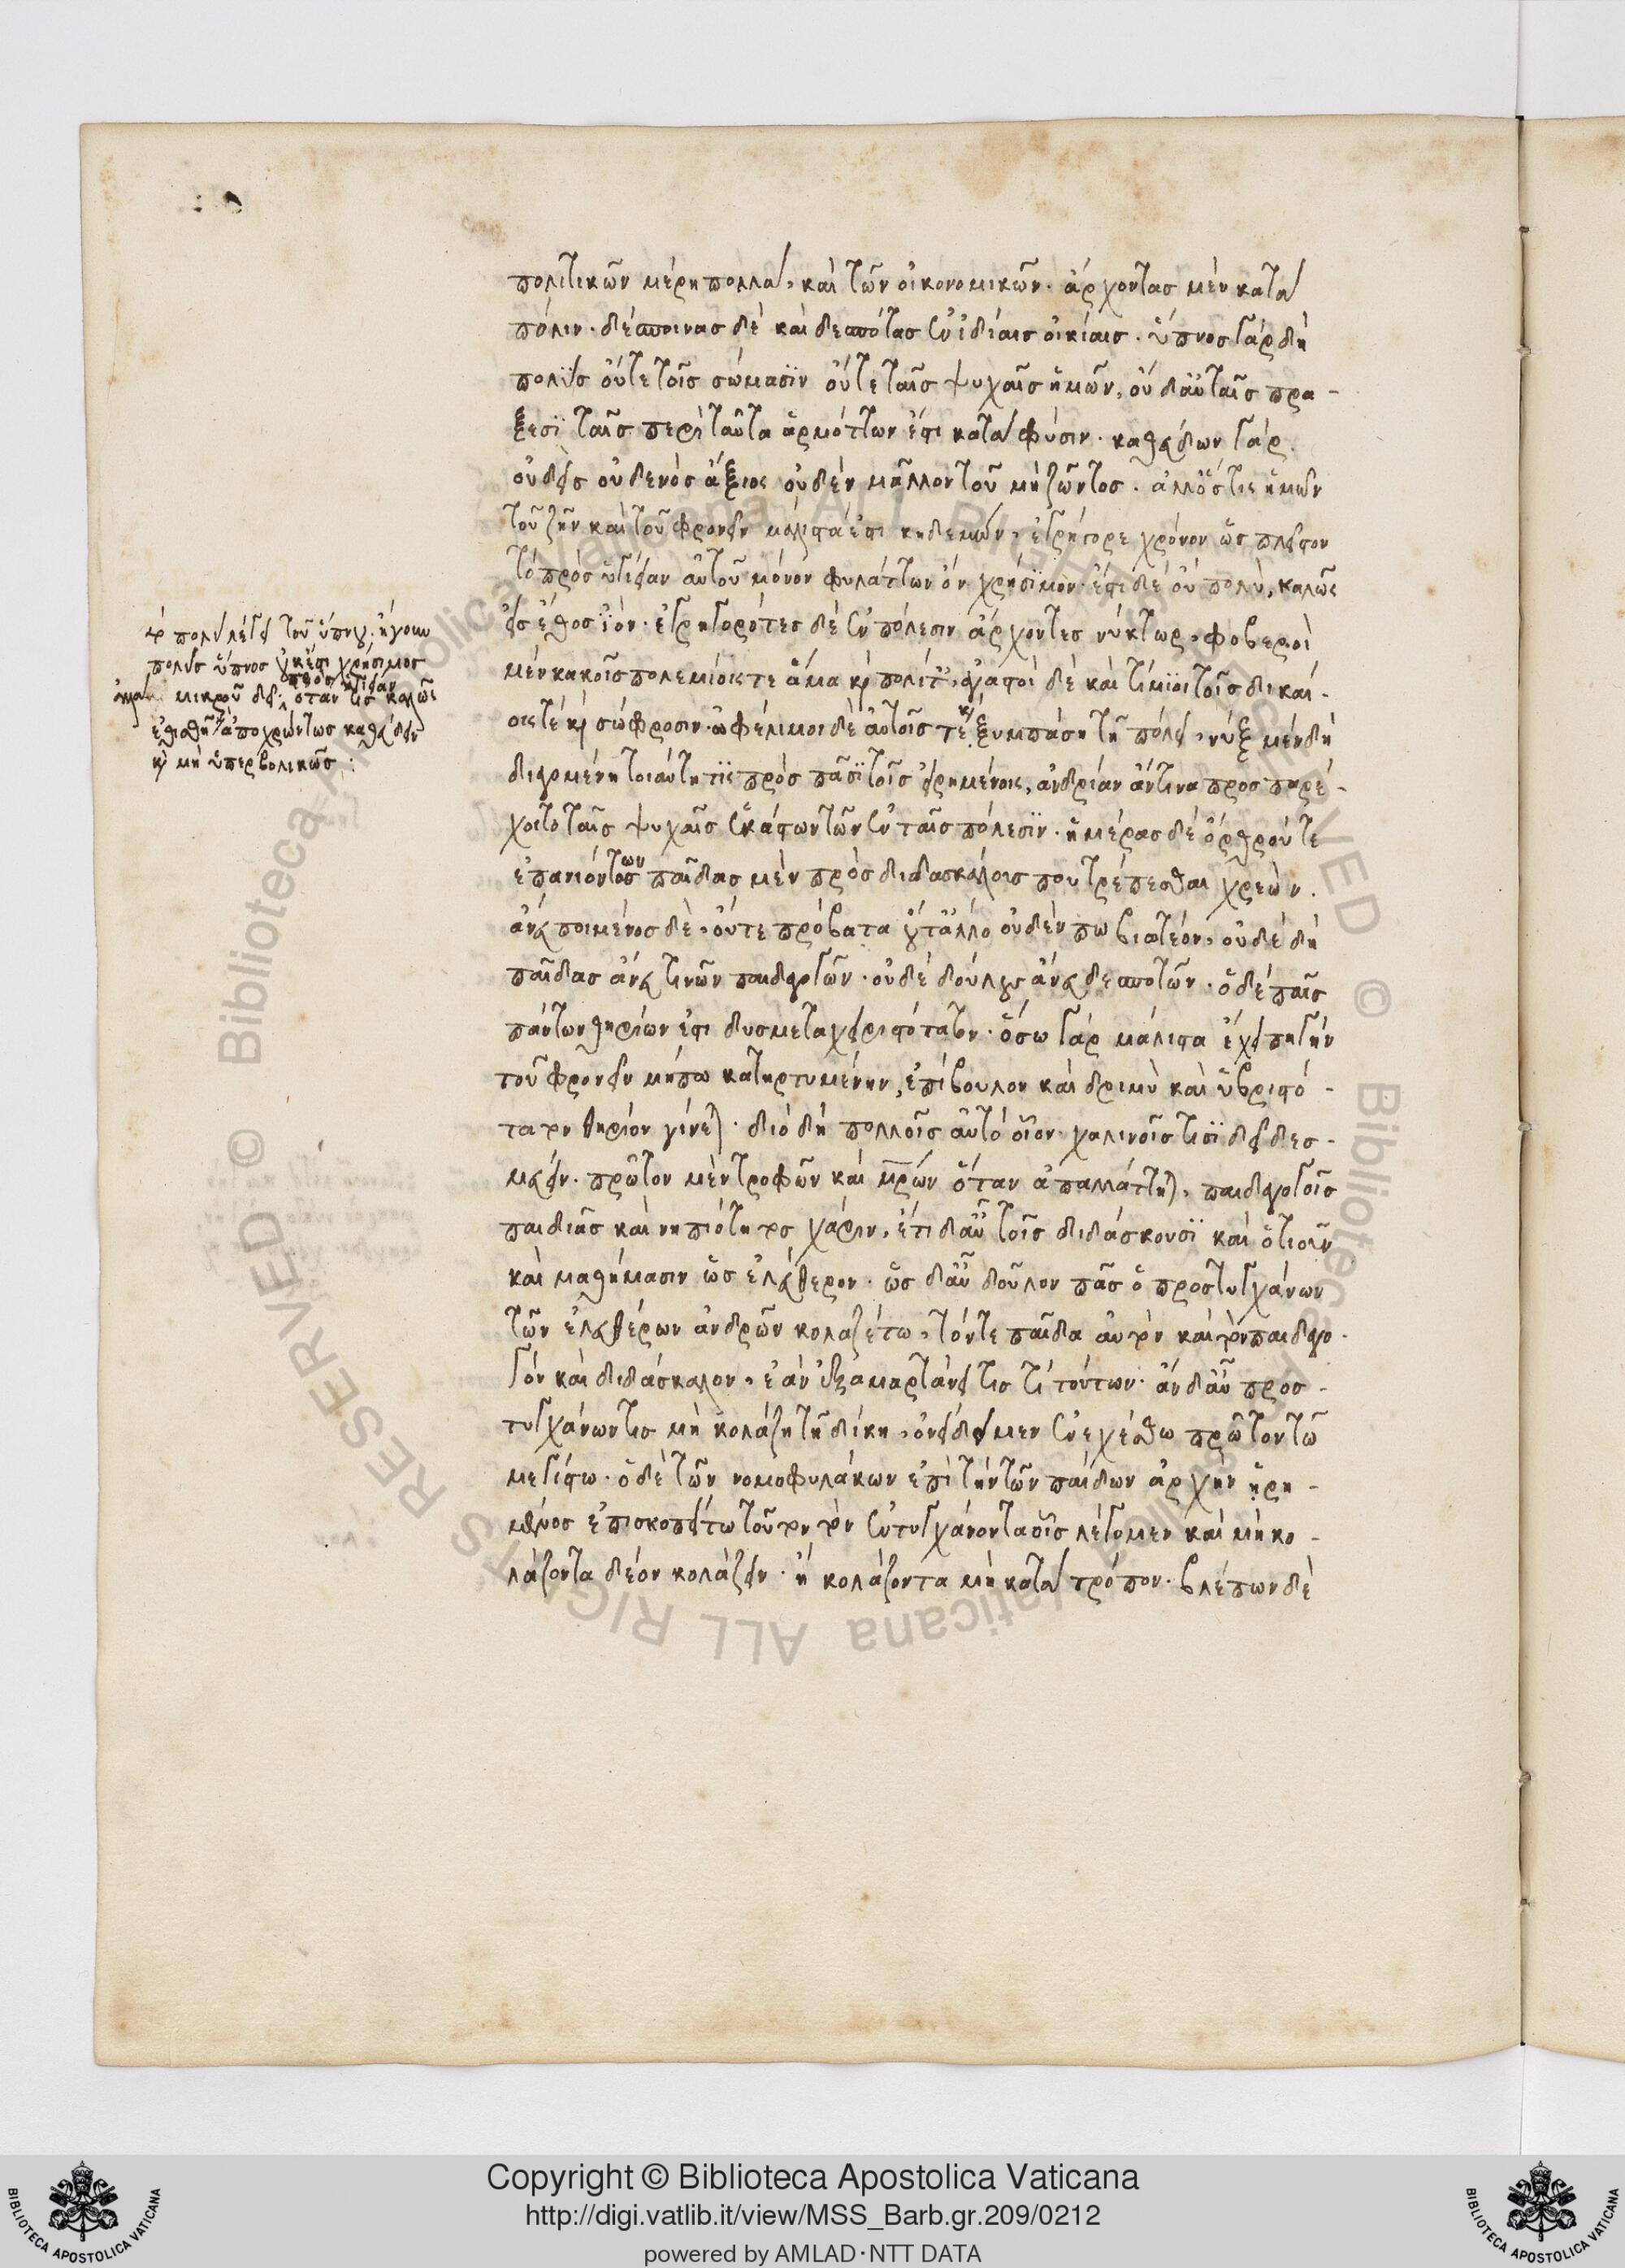 πολιτικῶν μέρη πολλὰ, καὶ τῶν οἰκονομικῶν· ἄρχοντας μὲν κατὰ
πόλιν· δεσποίνας δὲ καὶ δεσπότας ἐν ἰδίαις οἰκίαις· ὕπνος γὰρ δὴ
πολὺς οὔτε τοῖς σώμασϊν οὔτε ταῖς ψυχαῖς ἡμῶν, οὐδ' αὖ ταῖς πρα-
ξεσϊ ταῖς περὶ ταῦτα ἁρμόττων ἐστὶ κατὰ φύσιν· καθεύδων γὰρ
οὐδεὶς οὐδενὸς ἄξιος οὐδὲν μᾶλλον τοῦ μὴ ζῶντος· ἀλλ' ὅστις ἡμῶν
τοῦ ζῆν καὶ τοῦ φρονεῖν μάλιστά ἐστι κηδεμών, ἐγρήγορε χρόνον ὡς πλεῖστον
τὸ πρὸς ὑγίειαν αὐτοῦ μόνον φυλάττων ὂν χρήσϊμον· ἔστι δὲ οὐ πολὺ, καλῶς
εἰς ἔθος ϊόν· ἐγρηγορότες δὲ ἐν πόλεσιν ἄρχοντες νύκτωρ, φοβεροὶ
μὲν κακοῖς πολεμίοις τε ἅμα κὶ πολίτ, ἀγαστοὶ δὲ καὶ τίμϊοι τοῖς δικαί-
οις τὲ κὶ σώφροσιν· ὠφέλιμοι δὲ αὑτοῖς τὲ κὶ ξυμπάσῃ τῇ πόλει, νὺξ μὲν δὴ
διαγομένη τοιαύτη τὶς πρὸς πᾶσϊ τοῖς εἰρημένοις, ἀνδρίαν ἄν τινα προσπαρέ-
χοιτο ταῖς ψυχαῖς ἑκάστων τῶν ἐν ταῖς πόλεσϊν· ἡμέρας δὲ ὄρθρου τε
ἐπανιόντος των παῖδας μὲν πρὸς διδασκάλοις που τρέπεσθαι χρεών.
ἄνευ ποιμένος δὲ, οὔτε πρόβατα οὔτ' ἄλλο οὐδέν πω βιατέον, οὐδὲ δὴ
παῖδας ἄνευ τινῶν παιδαγωγῶν· οὐδὲ δούλους ἄνευ δεσποτῶν· ὁ δὲ παῖς
πάντων θηρίων ἐστὶ δυσμεταχειριστότατον· ὅσῳ γὰρ μάλιστα ἔχει πηγὴν
τοῦ φρονεῖν μήπω κατηρτυμένην, ἐπίβουλον καὶ δριμὺ καὶ ὑβριστό-
τατον θηρίον γίνεται· διὸ δὴ πολλοῖς αὐτὸ οἷον χαλινοῖς τισϊ δεῖ δεσ-
μεύειν· πρῶτον μὲν τροφῶν καὶ μρ̅ῶν ὅταν ἀπαλλάττηται, παιδαγωγοῖς
παιδιᾶς καὶ νηπιότητος χάριν, ἔτι δ' αὖ τοῖς διδάσκουσϊ καὶ ὁτιοῦν
καὶ μαθήμασιν ὡς ἐλεύθερον· ὡς δ' αὖ δοῦλον πᾶς ὁ προστυγχάνων
τῶν ἐλευθέρων ἀνδρῶν κολαζέτω, τόν τε παῖδα αὐτὸν καὶ τὸν παιδαγω-
γὸν καὶ διδάσκαλον, ἐὰν ἐξαμαρτάνει τίς τι τούτων· ἂν δ' αὖ προσ-
τυγχάνων τις μὴ κολάζῃ τῇ δίκῃ, ὀνείδει μὲν ἐνεχέσθω πρῶτον τῷ
μεγίστῳ· ὁ δὲ τῶν νομοφυλάκων ἐπὶ τὴν τῶν παίδων ἀρχὴν ᾑρη-
μένος ἐπισκοπείτω τοῦτον τὸν ἐντυγχάνοντα οἷς λέγομεν καὶ μὴ κο-
λάζοντα δέον κολάζειν· ἢ κολάζοντα μὴ κατὰ τρόπον· βλέπων δὲ
τὸ πολὺ λέγει τοῦ ὕπνου· ἤγουν
πολὺς ὕπνος οὐκ ἔστι χρήσιμος
πρὸς ὑγίειαν
ἀλλὰ μικροῦ δεῖ· ὅταν τις καλῶς
ἐθισθῇ ἀποχρώντως καθεύδειν
κὶ μὴ ὑπερβολικῶς :
Copyright © Biblioteca Apostolica Vaticana
http://digi.vatlib.it/view/MSS_Barb.gr.209/0212
powered by AMLAD·NTT DATA
BIBLIOTECA APOSTOLICA VATICANA
BIBLIOTECA APOSTOLICA VATICANA